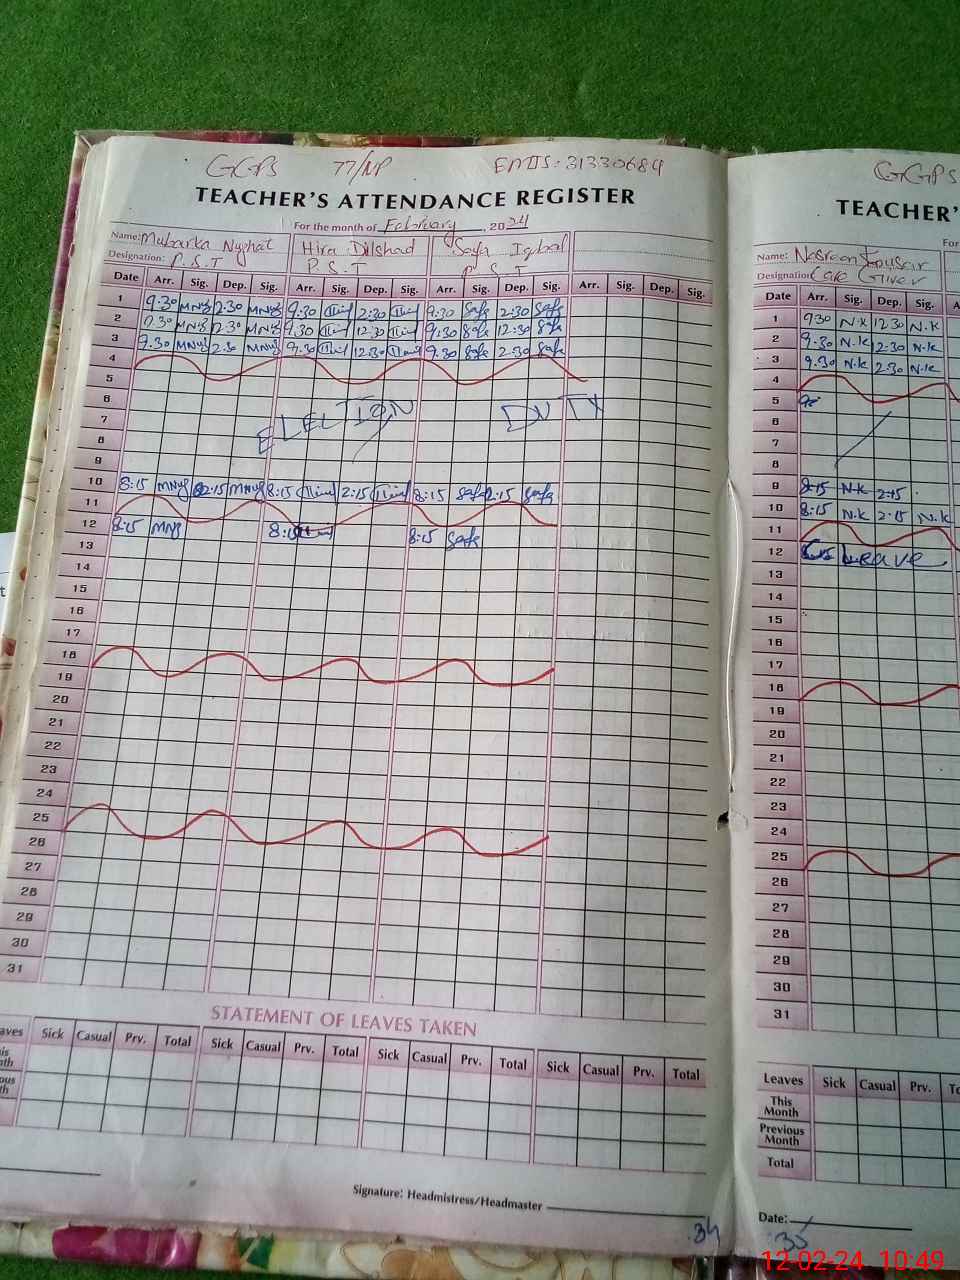 GGPS 77/NP EMIS: 31330684
TEACHER'S ATTENDANCE REGISTER
For the month of February, 2024
Name: Mubarka Nyghat Hira Dilshad Safa Iqbal
Designation: P.S.T P.S.T P.S.T
Date Arr. Sig. Dep. Sig. Arr. Sig. Dep. Sig. Arr. Sig. Dep. Sig. Arr. Sig. Dep. Sig.
1 9.30 2:30 9.30 2:30 9.30 Safa 2:30 Safa
2 12.30 9.30 12.30 9.30 Safa 12:30 Safa
3 9.30 2:30 9.30 12.30 9.30 Safa 2.30 Safa
4
5
6
7 ELECTION DUTY
8
9
10 8:15 2:15 8:15 2:15 8:15 Safa 2:15 Safa
11
12 8:15 8:15 8:15 Safa
13
14
15
16
17
18
19
20
21
22
23
24
25
26
27
28
29
30
31
STATEMENT OF LEAVES TAKEN
aves Sick Casual Prv. Total Sick Casual Prv. Total Sick Casual Prv. Total Sick Casual Prv. Total
is
nth
ous
th
Signature: Headmistress/Headmaster
34
GGPS
TEACHER'
For
Name: Nasreen Kousar
Designation Care Giver
Date Arr. Sig. Dep. Sig.
1 930 N.K 12.30 N.K
2 9.30 N.K 2.30 N.K
3 9.30 N.K 2.30 N.K
4
5
6
7
8
9 8:15 N.K 2:15
10 8:15 N.K 2:15 N.K
11
12 Leave
13
14
15
16
17
18
19
20
21
22
23
24
25
26
27
28
29
30
31
Leaves Sick Casual Prv. To
This Month
Previous Month
Total
Date:
35
12-02-24 10:49